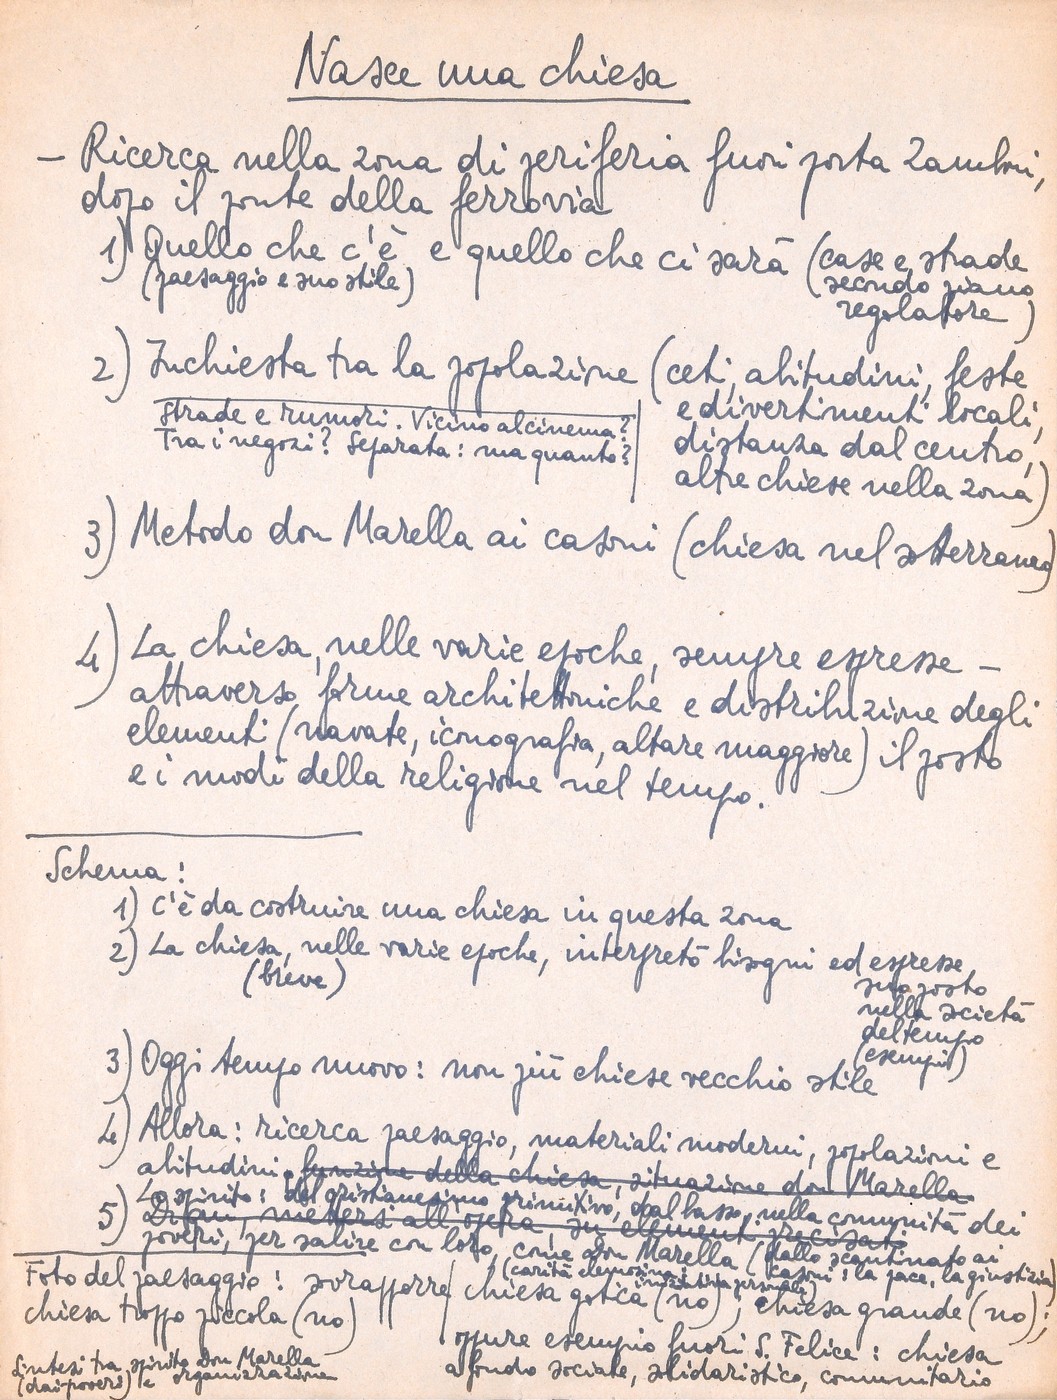 Nasce una chiesa
– Ricerca nella zona di periferia fuori porta Zamboni,
dopo il ponte della ferrovia
1) Quello che c'è e quello che ci sarà (case e strade
(paesaggio e suo stile)
secondo piano
regolatore)
2) Inchiesta tra la popolazione (ceti, abitudini, feste
e divertimenti locali,
distanza dal centro,
altre chiese nella zona)
strade e rumori. Vicino al cinema?
Tra i negozi? Separata: ma quanto?
3) Metodo don Marella ai casoni (chiesa nel sotterraneo)
4) La chiesa, nelle varie epoche, sempre espresse –
attraverso forme architettoniche e distribuzione degli
elementi (navate, iconografia, altare maggiore) il posto
e i modi della religione nel tempo.
Schema:
1) C'è da costruire una chiesa in questa zona
2) La chiesa, nelle varie epoche, interpretò bisogni ed espresse
(breve)
suo posto
nella società
del tempo
(esempi)
3) Oggi tempo nuovo: non più chiese vecchio stile
4) Allora: ricerca paesaggio, materiali moderni, popolazioni e
abitudini, funzione della chiesa, situazione don Marella
Lo spirito: del cristianesimo primitivo, dal basso, nella comunità dei
5) mettersi all'opera su elementi precisati
poveri, per salire con loro, come don Marella (dallo scantinato ai
casoni: la pace, la giustizia)
(carità elemosina iniziativa personale)
Foto del paesaggio: sovrapporre chiesa gotica (no); chiesa grande (no);
chiesa troppo piccola (no)
oppure esempio fuori S. Felice: chiesa
a fondo sociale, solidaristico, comunitario
Sintesi tra spirito don Marella
(dai poveri) e organizzazione